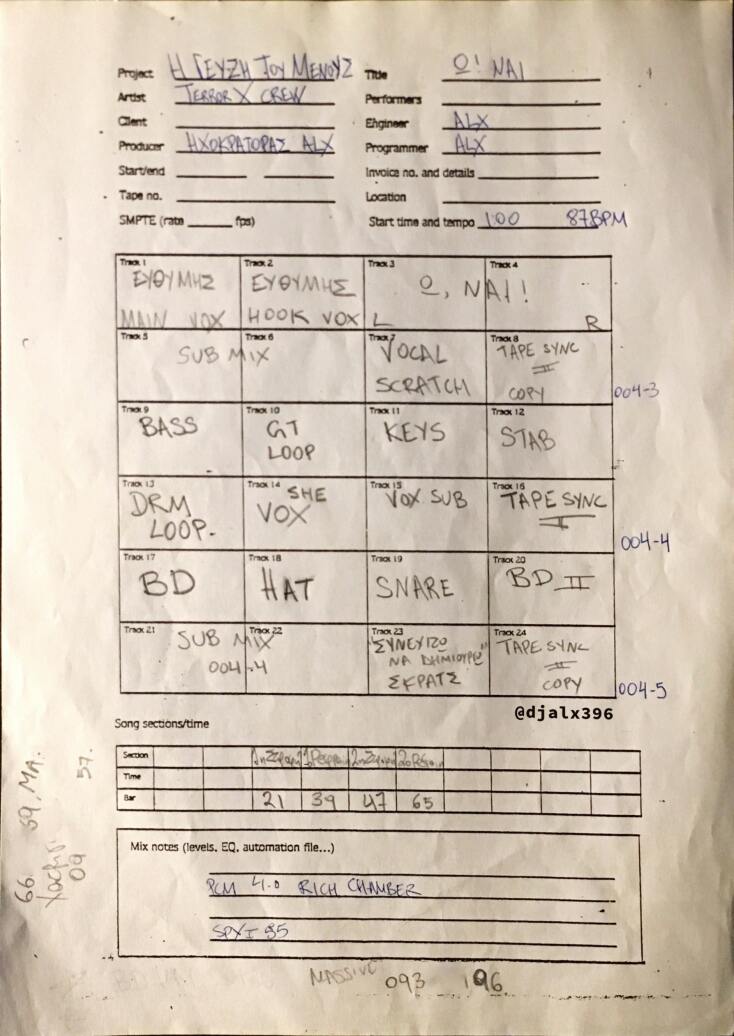 Project Η ΓΕΥΣΗ ΤΟΥ ΜΕΝΟΥΣ Title Ω! ΝΑΙ
Artist TERROR X CREW Performers
Client Engineer ALX
Producer ΗΧΟΚΡΑΤΟΡΑΣ ALX Programmer ALX
Start/end Invoice no. and details
Tape no. Location
SMPTE (rate fps) Start time and tempo 1:00 87BPM
Track 1 Track 2 Track 3 Track 4
ΕΥΘΥΜΗΣ ΕΥΘΥΜΗΣ Ω, ΝΑΙ!
MAIN VOX HOOK VOX L R
Track 5 Track 6 Track 7 Track 8
SUB MIX VOCAL TAPE SYNC
II
SCRATCH COPY 004-3
Track 9 Track 10 Track 11 Track 12
BASS GT KEYS STAB
LOOP
Track 13 Track 14 Track 15 Track 16
DRM SHE VOX SUB TAPE SYNC
LOOP. VOX I
004-4
Track 17 Track 18 Track 19 Track 20
BD HAT SNARE BD II
Track 21 Track 22 Track 23 Track 24
SUB MIX ΣΥΝΕΧΙΖΩ TAPE SYNC
004-4 ΝΑ ΔΗΜΙΟΥΡΓΩ II
ΣΚΡΑΤΣ COPY 004-5
@djalx396
Song sections/time
Section
Time
Bar 21 39 47 65
Mix notes (levels, EQ, automation file...)
PCM 41.0 RICH CHAMBER
MASSIVE 093 196
57.
66. 59, MA.
09